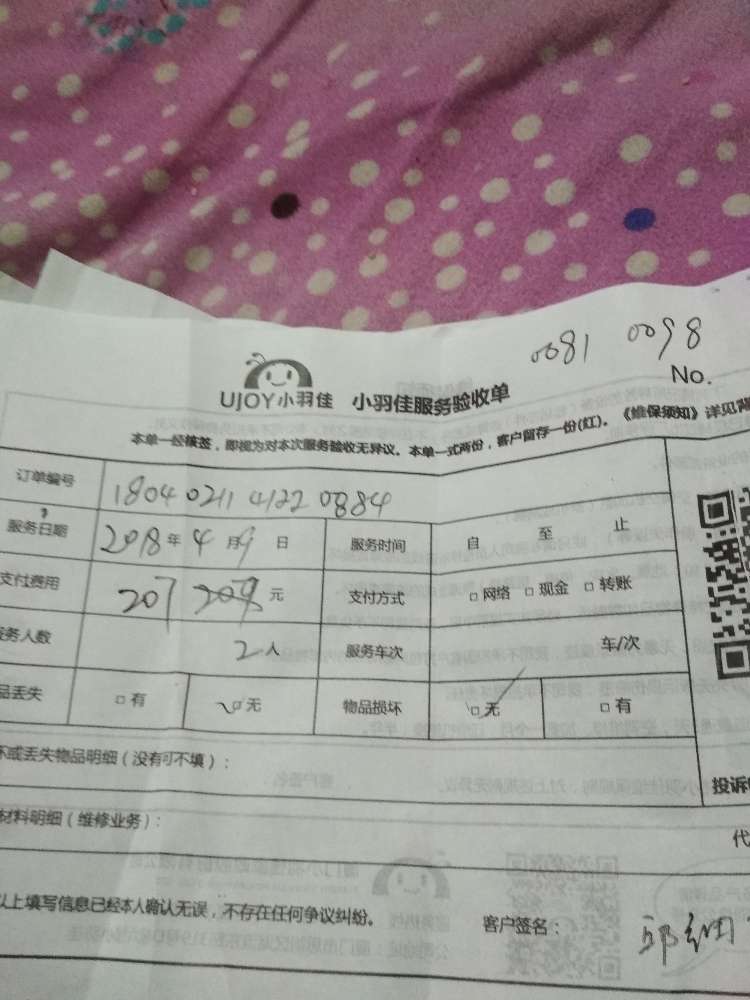 0081 0098
No.
UJOY小羽佳 小羽佳服务验收单
本单一经核签，即视为对本次服务验收无异议。本单一式两份，客户留存一份(红)。《维保须知》详见背
订单编号 18040211 4122 0884
服务日期 2018年4月9日 服务时间 自 至 止
支付费用 207 元 支付方式 □网络 □现金 □转账
务人数 2人 服务车次 车/次
品丢失 □有 □无 物品损坏 □无 □有
坏或丢失物品明细（没有可不填）：
投诉
材料明细（维修业务）：
代
以上填写信息已经本人确认无误，不存在任何争议纠纷。 客户签名：